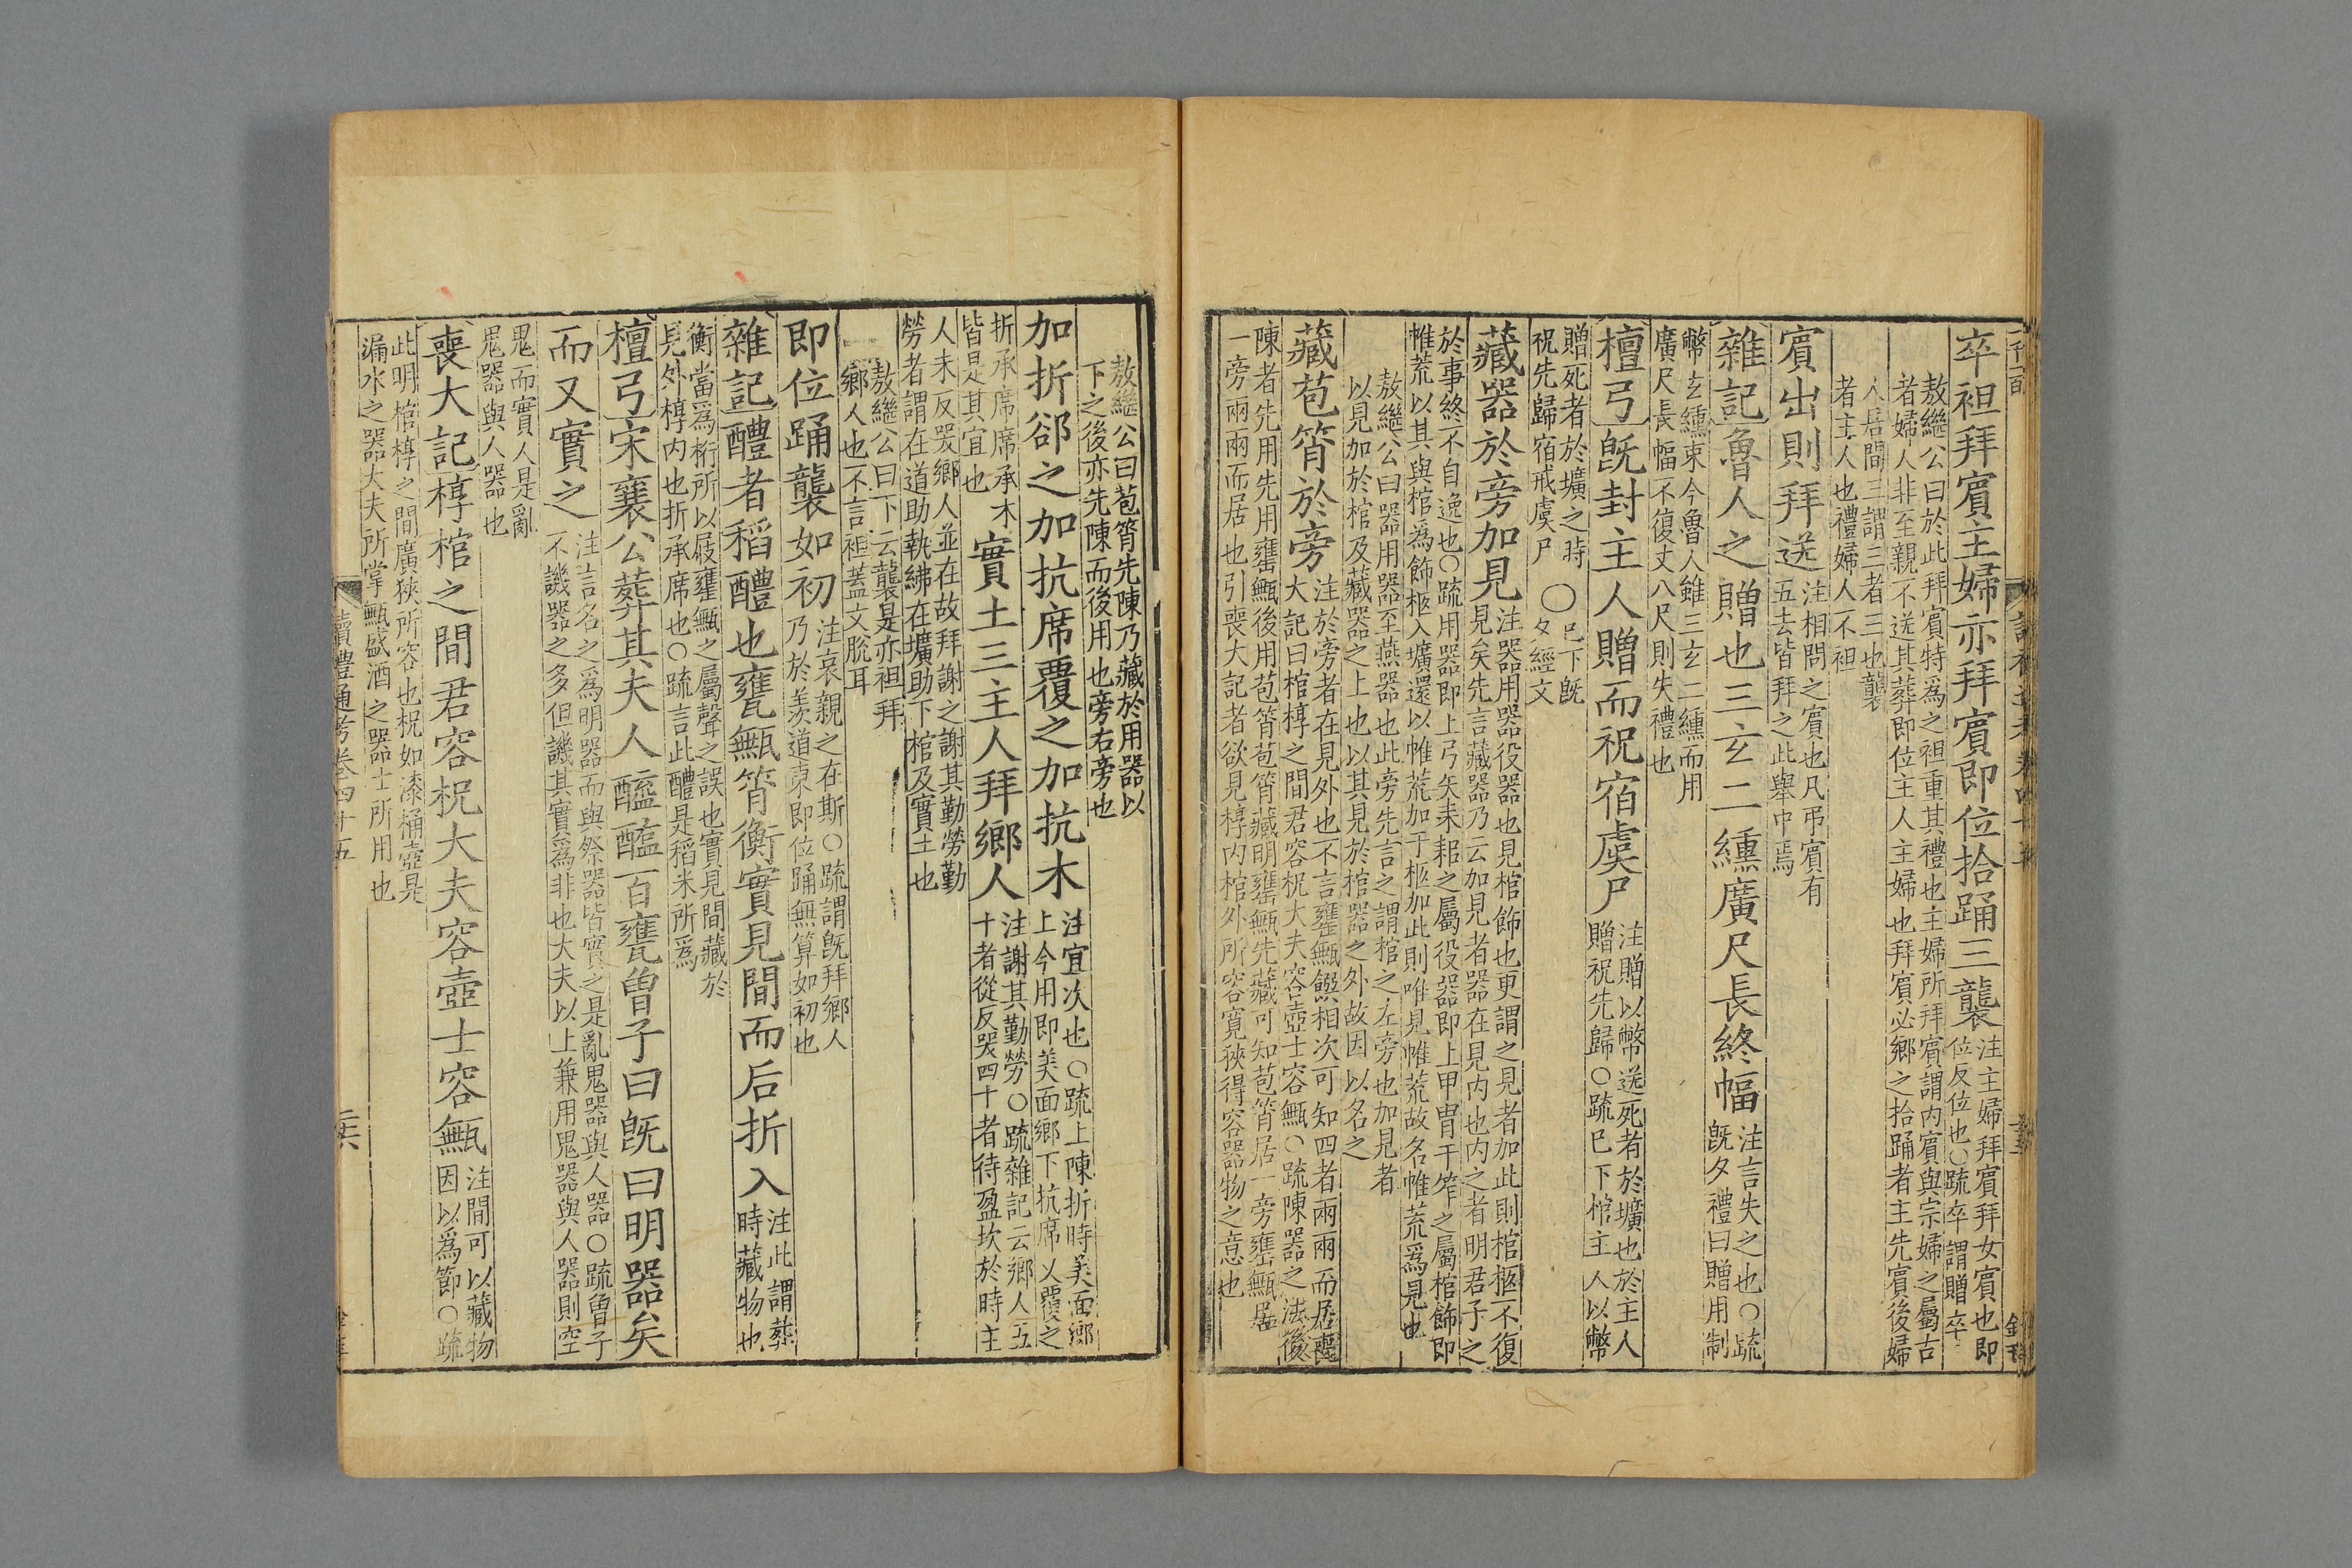 卒袒拜賓主婦亦拜賓即位拾踊三襲
注主婦拜賓拜女賓也即
位反位也○疏卒謂贈卒
敖繼公曰於此拜賓特為之袒重其禮也主婦所拜賓謂内賓與宗婦之屬古
者婦人非至親不送其葬即位主人主婦也拜賓必鄉之拾踊者主先賓後婦
人居間三謂三者三也襲
者主人也禮婦人不袒
賓出則拜送
注相問之賓也凡弔賓有
五去皆拜之此舉中焉
雜記魯人之贈也三玄二纁廣尺長終幅
注言失之也○疏
旣夕禮曰贈用制
幣玄纁束今魯人雖三玄二纁而用
廣尺長幅不復丈八尺則失禮也
檀弓旣封主人贈而祝宿虞尸
注贈以幣送死者於壙也於主人
贈祝先歸○疏巳下棺主人以幣
贈死者於壙之時
祝先歸宿戒虞尸
○巳下旣
夕經文
藏器於旁加見
注器用器役器也見棺飾也更謂之見者加此則棺柩不復
見矣先言藏器乃云加見者器在見内也内之者明君子之
於事終不自逸也○疏用器即上弓矢耒耜之屬役器即上甲冑干笮之屬棺飾即
帷荒以其與棺為飾柩入壙還以帷荒加于柩加此則唯見帷荒故名帷荒爲見也
敖繼公曰器用器至燕器也此旁先言之謂棺之左旁也加見者
以見加於棺及藏器之上也以其見於棺器之外故因以名之
藏苞筲於旁
注於旁者在見外也不言甕甒饌相次可知四者兩兩而居喪
大記曰棺椁之間君容柷大夫容壺士容甒○疏陳器之法後
陳者先用先用甕甒後用苞筲苞筲藏明甕甒先藏可知苞筲居一旁甕甒居
一旁兩兩而居也引喪大記者欲見椁内棺外所容寬狹得容器物之意也
敖繼公曰苞筲先陳乃藏於用器以
下之後亦先陳而後用也旁右旁也
加折卻之加抗席覆之加抗木
注宜次也○疏上陳折時美面鄉
上今用即美面鄉下抗席又覆之
折承席席承木
皆是其宜也
實土三主人拜鄉人
注謝其勤勞○疏雜記云鄉人五
十者從反哭四十者待盈坎於時主
人未反哭鄉人並在故拜謝之謝其勤勞勤
勞者謂在道助執紼在壙助下棺及實土也
敖繼公曰下云襲是亦袒拜
鄉人也不言袒蓋文脫耳
即位踊襲如初
注哀親之在斯○疏謂旣拜鄉人
乃於羨道東即位踊無算如初也
雜記醴者稻醴也甕甒筲衡實見間而后折入
注此謂葬
時藏物也
衡當爲桁所以庪甕甒之屬聲之誤也實見間藏於
見外椁内也折承席也○疏言此醴是稻米所爲
檀弓宋襄公葬其夫人醯醢百甕曾子曰旣曰明器矣
而又實之
注言名之爲明器而與祭器皆實之是亂鬼器與人器○疏曾子
不譏器之多但譏其實爲非也大夫以上兼用鬼器與人器則空
鬼而實人是亂
鬼器與人器也
喪大記椁棺之間君容柷大夫容壺士容甒
注間可以藏物
因以爲節○疏
此明棺椁之間廣狹所容也柷如漆桶壺是
漏水之器大夫所掌甒盛酒之器士所用也
讀禮通考卷四十五
二六